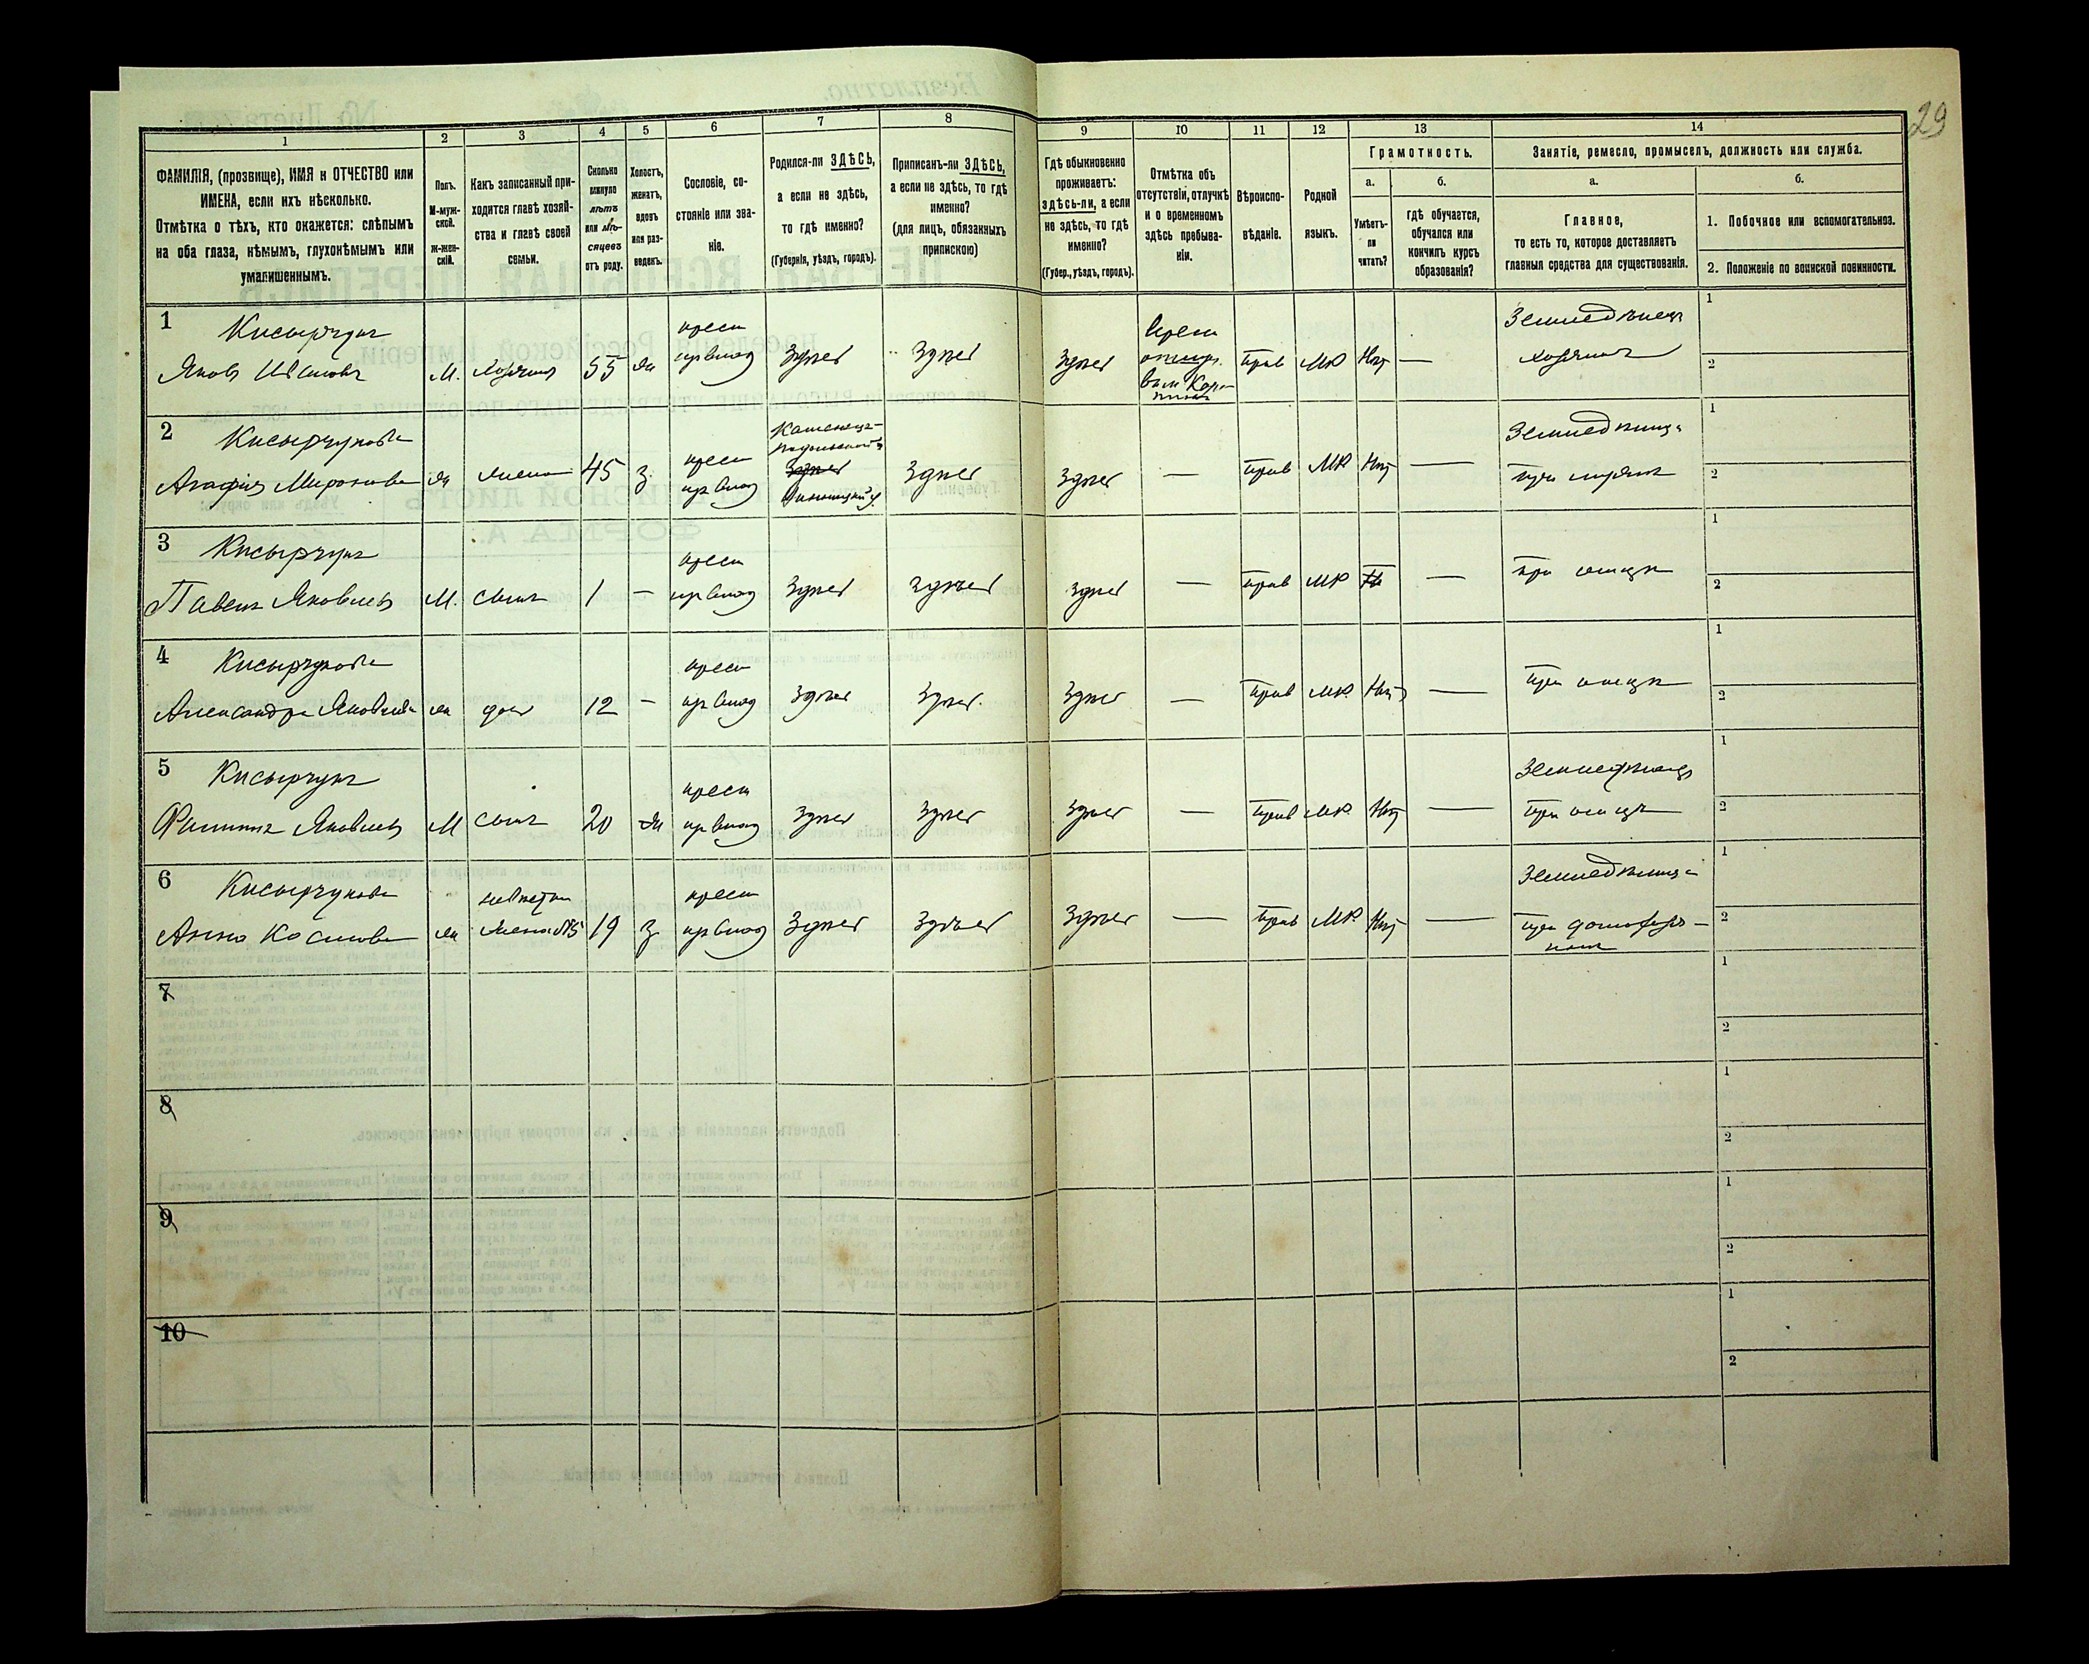 29
1 2 3 4 5 6 7 8 9 10 11 12 13 14
ФАМИЛІЯ, (прозвище), ИМЯ и ОТЧЕСТВО или
ИМЕНА, если ихъ нѣсколько.
Отмѣтка о тѣхъ, кто окажется: слѣпымъ
на оба глаза, нѣмымъ, глухонѣмымъ или
умалишеннымъ.
Полъ.
М-муж-
ской.
Ж-жен-
скій.
Какъ записанный при-
ходится главѣ хозяй-
ства и главѣ своей
семьи.
Сколько
минуло
лѣтъ
или мѣ-
сяцевъ
отъ роду.
Холостъ,
женатъ,
вдовъ
или раз-
веденъ.
Сословіе, со-
стояніе или зва-
ніе.
Родился-ли ЗДѢСЬ,
а если не здѣсь,
то гдѣ именно?
(Губернія, уѣздъ, городъ).
Приписанъ-ли ЗДѢСЬ,
а если не здѣсь, то гдѣ
именно?
(для лицъ, обязанныхъ
припискою)
Гдѣ обыкновенно
проживаетъ:
здѣсь-ли, а если
не здѣсь, то гдѣ
именно?
(Губер., уѣздъ, городъ).
Отмѣтка объ
отсутствіи, отлучкѣ
и о временномъ
здѣсь пребыва-
ніи.
Вѣроиспо-
вѣданіе.
Родной
языкъ.
Грамотность.
а.
Умѣетъ-
ли
читать?
б.
гдѣ обучается,
обучался или
кончилъ курсъ
образованія?
Занятіе, ремесло, промыселъ, должность или служба.
а.
Главное,
то есть то, которое доставляетъ
главныя средства для существованія.
б.
1. Побочное или вспомогательное.
2. Положеніе по воинской повинности.
1 Кисырчукъ
Яковъ Ивановъ М. хозяинъ 55 ж крест здѣсь здѣсь здѣсь прав МР Нѣтъ —
Земледѣлецъ
хозяинъ
1
2
2 Кисырчукова
Агафія Миронова ж жена 45 з. крест здѣсь здѣсь здѣсь — прав МР Нѣтъ —
Земледѣлица
1
2
3 Кисырчукъ
Павелъ Яковлевъ М. сынъ 1 — крест здѣсь здѣсь здѣсь — прав МР —
при отцѣ
1
2
4 Кисырчукова
Александра Яковлева ж доч 12 — крест здѣсь здѣсь здѣсь — прав МР Нѣтъ —
при отцѣ
1
2
5 Кисырчукъ
Филиппъ Яковлевъ М сынъ 20 ж крест здѣсь здѣсь здѣсь — прав МР Нѣтъ —
Земледѣлецъ
при отцѣ
1
2
6 Кисырчукова
невѣстка
Анна Космова ж жена №5 19 з. крест здѣсь здѣсь здѣсь — прав МР Нѣтъ —
Земледѣлица
1
2
7
1
2
8
1
2
9
1
2
10
1
2